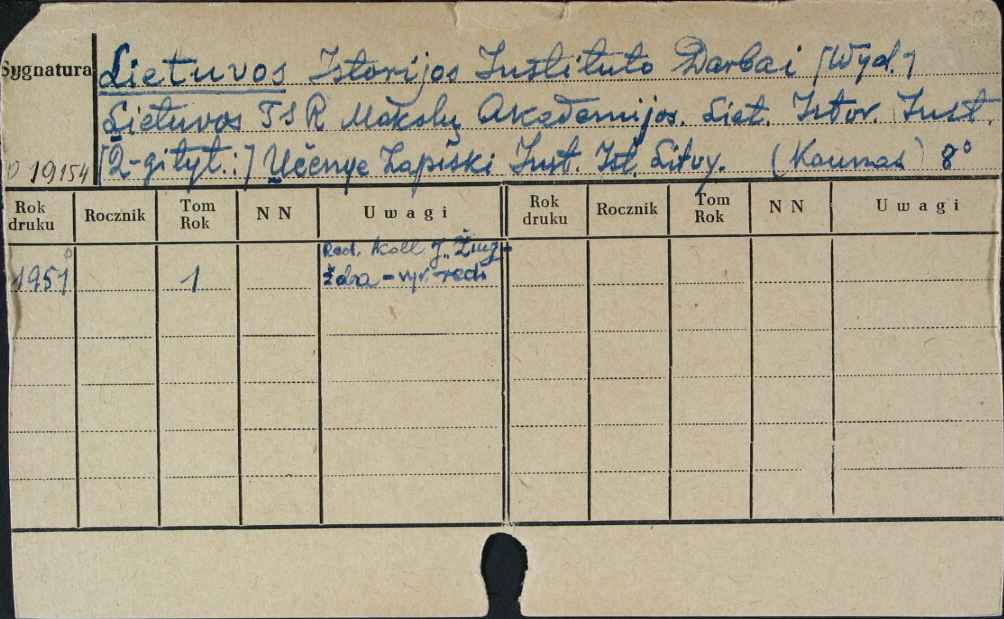 Sygnatura
Lietuvos Istorijos Instituto Darbai [Wyd.]
Lietuvos TSR Mokslų Akademijos. Liet. Istor. Inst.
[2-gi tyt.:] Učenye Zapiski Inst. Ist. Litvy. (Kaunas) 8°
P 19154
Rok druku Rocznik Tom Rok NN Uwagi Rok druku Rocznik Tom Rok NN Uwagi
Red. Koll. J. Žiug-
1951 1 žda - vyr. red.